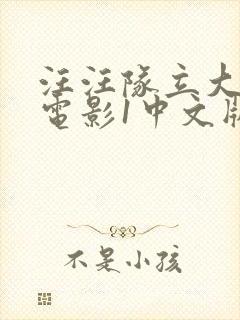 汪汪隊立大
電影1中文版
不是小孩